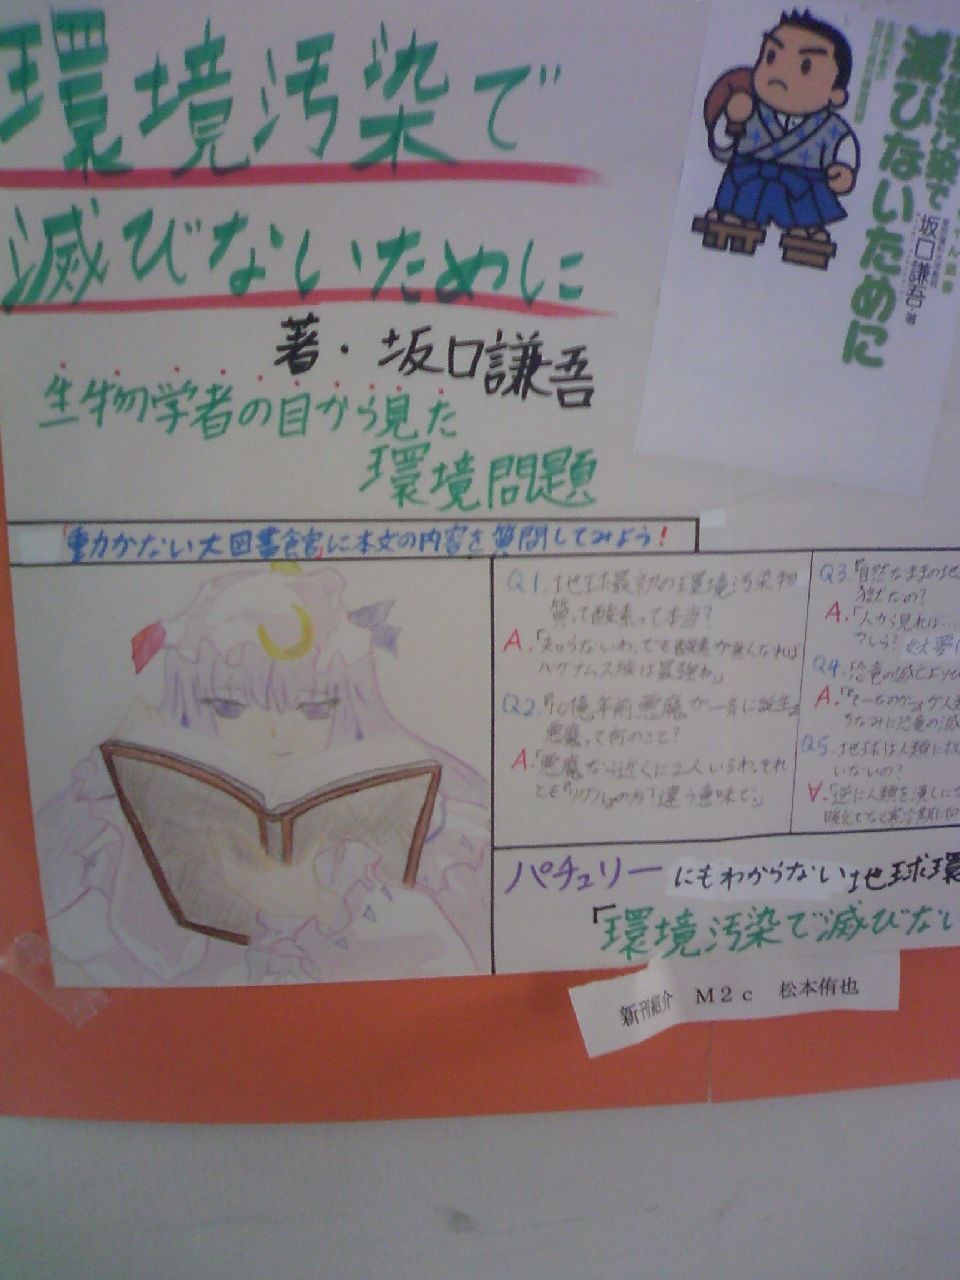 環境汚染で
滅びないために
著・坂口謙吾
生物学者の目から見た
環境問題
滅びないために
坂口謙吾 著
「動かない大図書館」に本文の内容を質問してみよう!
Q1.地球最初の環境汚染物
質って酸素って本当?
A.「知らないわ、でも酸素が無くなれば
ハクタムス族は最強ね。」
Q2.『10億年前悪魔が一斉に誕生』
悪魔って何のこと?
A.「悪魔なら近くに2人いるわ、それ
とも『リグル』の方?違う意味で。」
Q3.『自然なままの地
獄なの?
A.「人から見れば…
かしら?
Q4.恐竜の滅亡
A.「『そーなのかー』が人
ちなみに恐竜の滅
Q5.地球は人類に
いないの?
A.「逆に人類を潰しに
パチュリーにもわからない地球環
「環境汚染で滅びない
新刊紹介 M2c 松本侑也